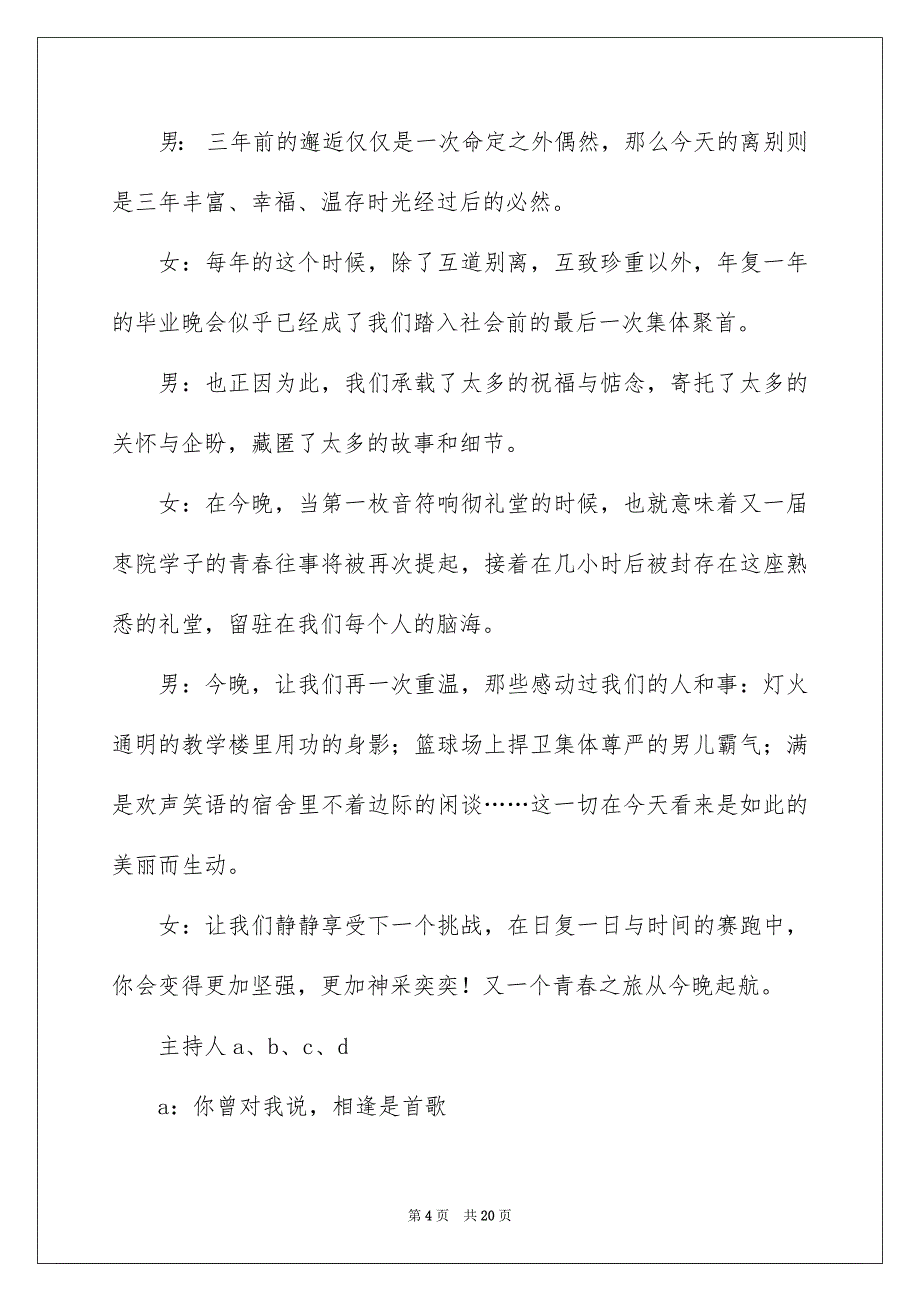 男： 三年前的邂逅仅仅是一次命定之外偶然，那么今天的离别则
是三年丰富、幸福、温存时光经过后的必然。
女：每年的这个时候，除了互道别离，互致珍重以外，年复一年
的毕业晚会似乎已经成了我们踏入社会前的最后一次集体聚首。
男：也正因为此，我们承载了太多的祝福与惦念，寄托了太多的
关怀与企盼，藏匿了太多的故事和细节。
女：在今晚，当第一枚音符响彻礼堂的时候，也就意味着又一届
枣院学子的青春往事将被再次提起，接着在几小时后被封存在这座熟
悉的礼堂，留驻在我们每个人的脑海。
男：今晚，让我们再一次重温，那些感动过我们的人和事：灯火
通明的教学楼里用功的身影；篮球场上捍卫集体尊严的男儿霸气；满
是欢声笑语的宿舍里不着边际的闲谈……这一切在今天看来是如此的
美丽而生动。
女：让我们静静享受下一个挑战，在日复一日与时间的赛跑中，
你会变得更加坚强，更加神采奕奕！又一个青春之旅从今晚起航。
主持人a、b、c、d
a：你曾对我说，相逢是首歌
第 4 页 共 20 页